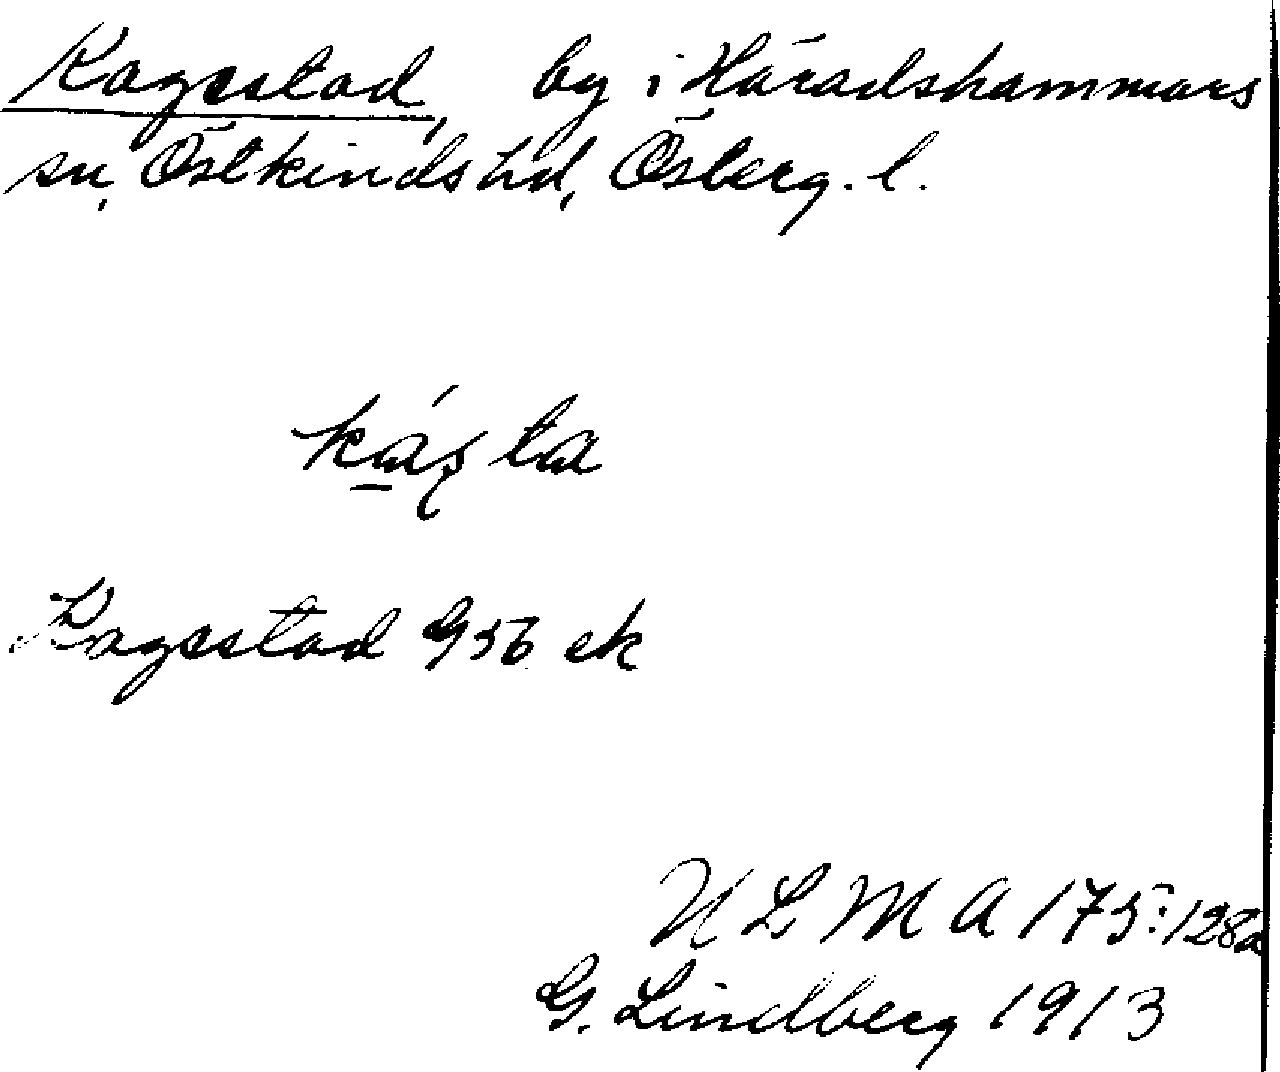 Kagestad, by i Häradshammars
sn, Östkinds hd, Österg. l.
kás̨ta
Kagestad G 56 ek
ULMA 175:128a
G. Lindberg 1913